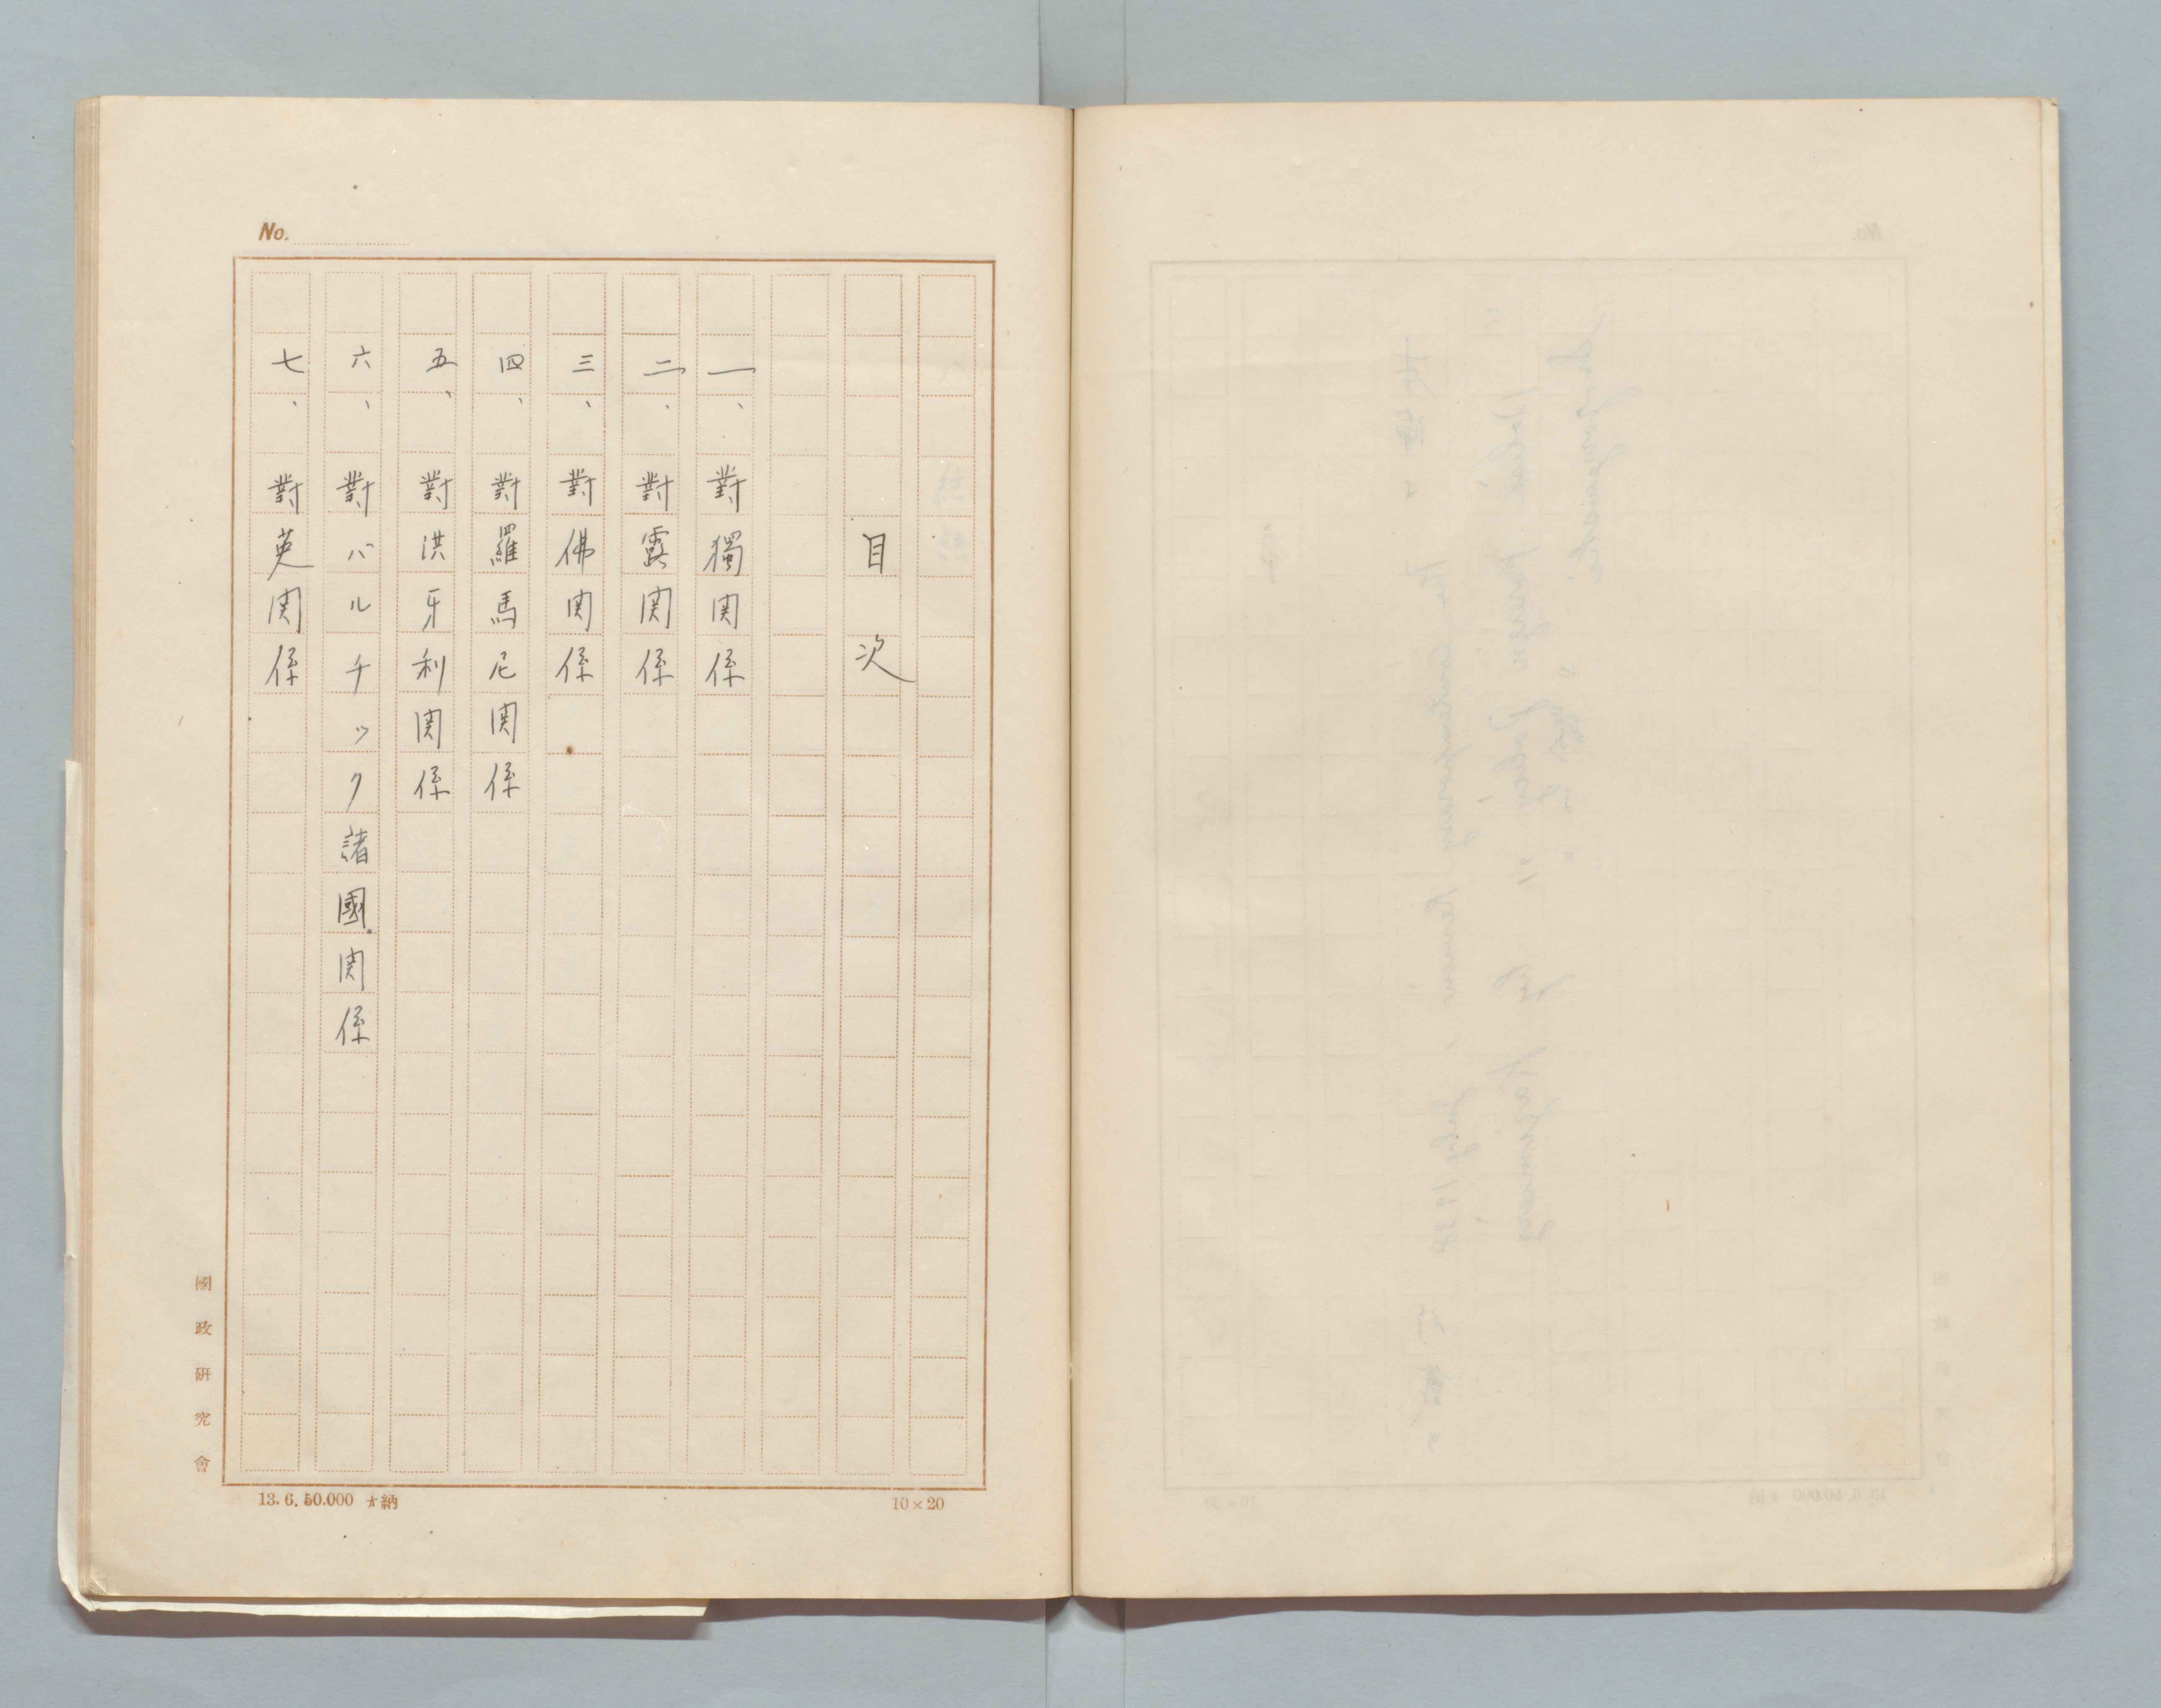 No.
目次
一、對獨関係
二、對露関係
三、對佛関係
四、對羅馬尼関係
五、對洪牙利関係
六、對バルチック諸國関係
七、對英関係
國政研究會
13.6.50.000 納
10×20